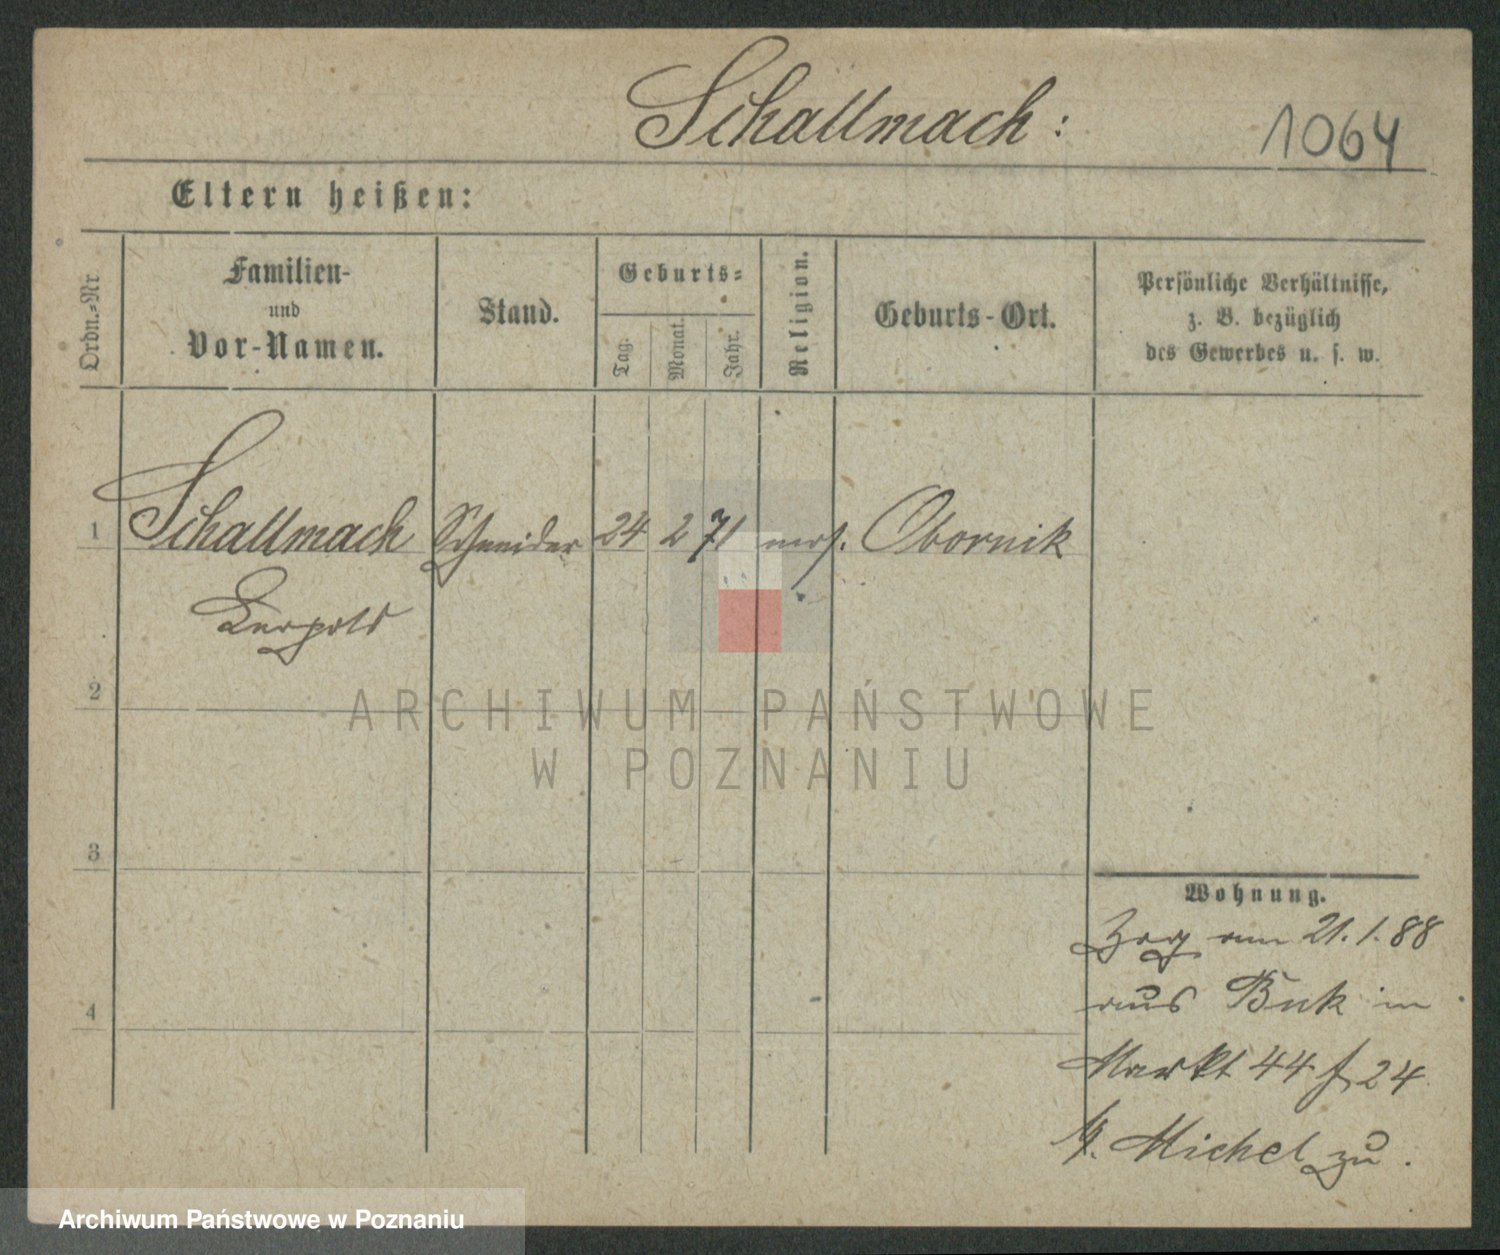 Schallmach:
1064
Eltern heißen:
Ordn.-Nr
Familien-
und
Vor-Namen.
Stand.
Geburts-
Tag.
Monat.
Jahr.
Religion.
Geburts-Ort.
Persönliche Verhältnisse,
z. B. bezüglich
des Gewerbes u. s. w.
1 Schallmach Schneider 24 2 71 mos. Obornik
Leopold
2
3
4
Wohnung.
Zog am 21.1.88
aus Buk in
Markt 44 24
Michel zu.
ARCHIWUM PAŃSTWOWE
W POZNANIU
Archiwum Państwowe w Poznaniu